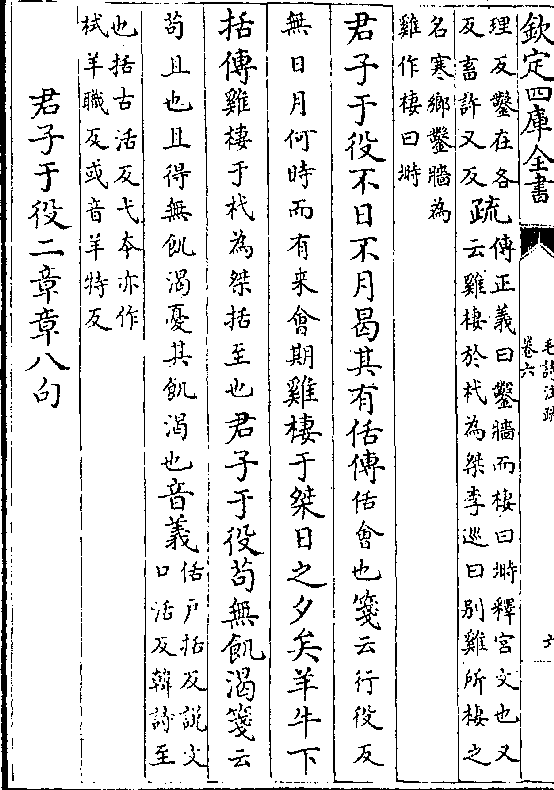 欽定四庫全書
毛詩注疏
卷六
理反鑿在各
反畜許又反
疏
傳正義曰鑿牆而棲曰塒釋宮文也又
云雞棲於杙為桀李巡曰別雞所棲之
名寒鄉鑿牆為
雞作棲曰塒
君子于役不日不月曷其有佸傳佸會也箋云行役反
無日月何時而有來會期雞棲于桀日之夕矣羊牛下
括傳雞棲于杙為桀括至也君子于役苟無飢渴箋云
苟且也且得無飢渴憂其飢渴也音義
佸戸括反說文
口活反韓詩至
也括古活反弋本亦作
杙羊職反或音羊特反
君子于役二章章八句